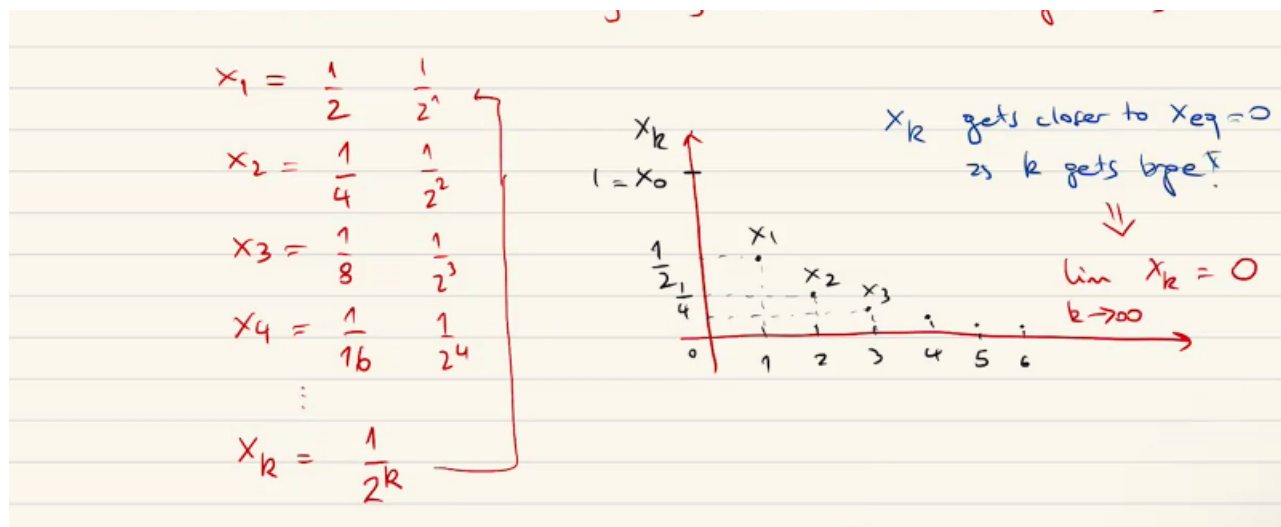 x₁ = 1/2 1/2¹
x₂ = 1/4 1/2²
x₃ = 1/8 1/2³
x₄ = 1/16 1/2⁴
⋮
x_k = 1/2^k
x_k
1 = x₀
1/2
1/4
x₁
x₂
x₃
0 1 2 3 4 5 6
x_k gets closer to x_eq = 0
as k gets
⇓
lim x_k = 0
k→∞